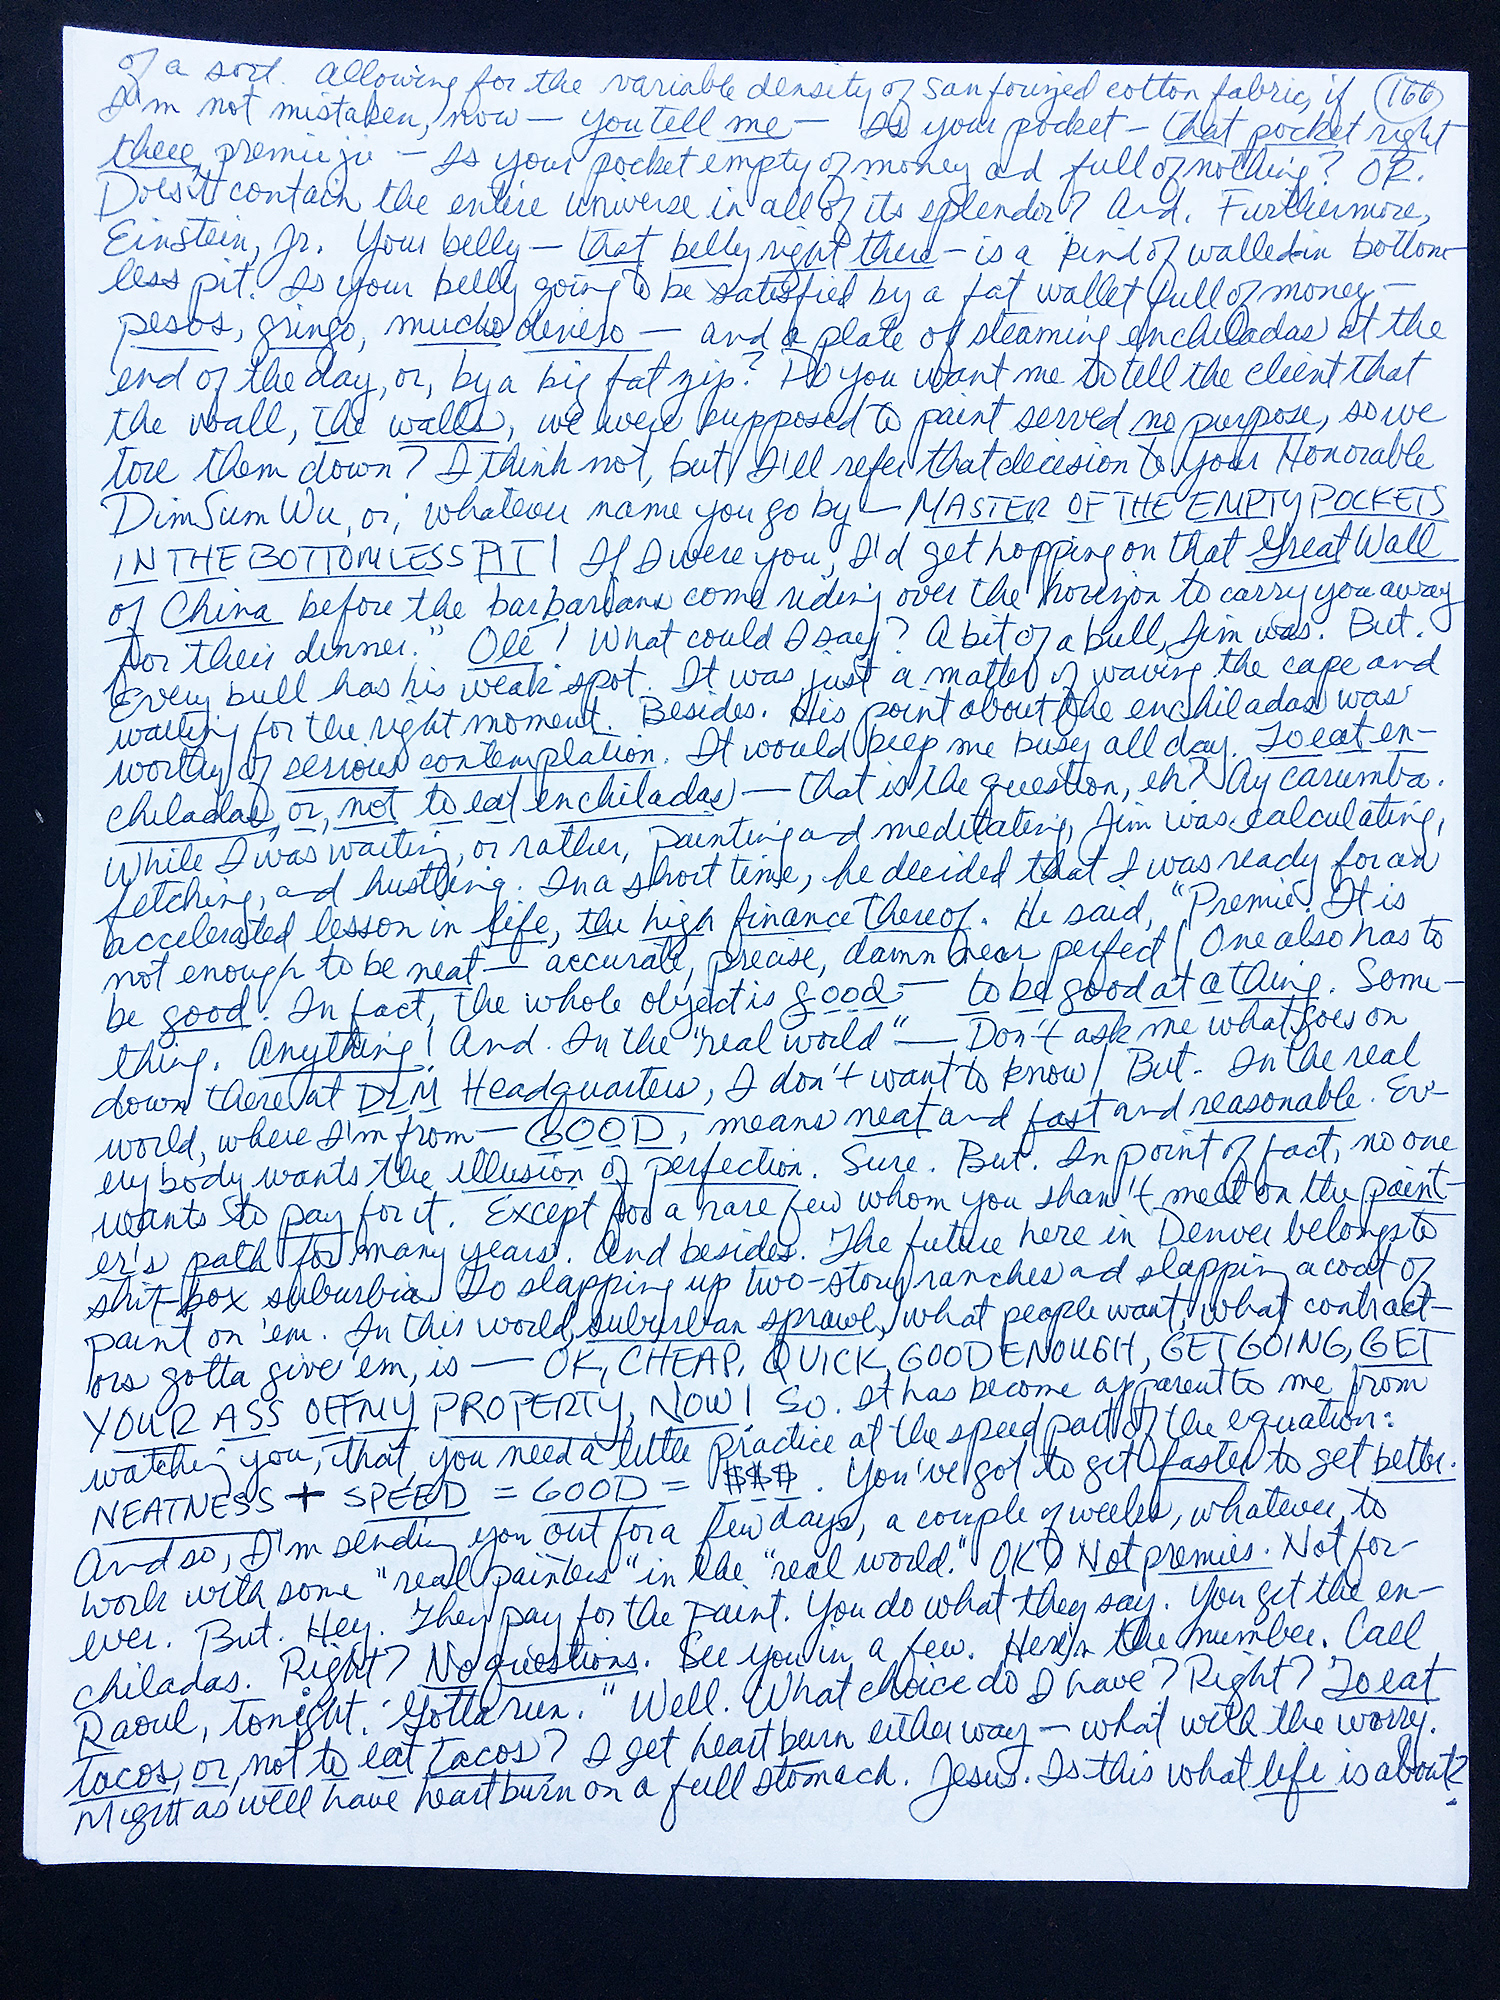 of a sort. Allowing for the variable density of sanforized cotton fabric, if (166)
I'm not mistaken, now — you tell me — Is your pocket — that pocket right
there, premie ji — Is your pocket empty of money and full of nothing? OR.
Does it contain the entire universe in all of its splendor? And. Furthermore,
Einstein, Jr. Your belly — that belly right there — is a kind of walled-in bottom-
less pit. Is your belly going to be satisfied by a fat wallet full of money —
pesos, gringo, mucho deniro — and a plate of steaming enchiladas at the
end of the day, or, by a big fat zip? Do you want me to tell the client that
the wall, the walls, we were supposed to paint served no purpose, so we
tore them down? I think not, but, I'll refer that decision to your Honorable
DimSum Wu, or, whatever name you go by — MASTER OF THE EMPTY POCKETS
IN THE BOTTOMLESS PIT! If I were you, I'd get hopping on that Great Wall
of China before the barbarians come riding over the horizon to carry you away
for their dinner." Olé! What could I say? A bit of a bull, Jim was. But.
Every bull has his weak spot. It was just a matter of waving the cape and
waiting for the right moment. Besides. His point about the enchiladas was
worthy of serious contemplation. It would keep me busy all day. To eat en-
chiladas, or, not to eat enchiladas — that is the question, eh? Ay carumba.
While I was waiting, or rather, painting and meditating, Jim was calculating,
fetching, and hustling. In a short time, he decided that I was ready for an
accelerated lesson in life, the high finance thereof. He said, "Premie. It is
not enough to be neat — accurate, precise, damn near perfect! One also has to
be good. In fact, the whole object is good — to be good at a thing. Some-
thing. Anything! And. In the "real world" — Don't ask me what goes on
down there at DLM Headquarters, I don't want to know! But. In the real
world, where I'm from — GOOD, means neat and fast and reasonable. Ev-
erybody wants the illusion of perfection. Sure. But. In point of fact, no one
wants to pay for it. Except for a rare few whom you shan't meet on the paint-
er's path for many years. And besides. The future here in Denver belongs to
shit-box suburbia. To slapping up two-story ranches and slapping a coat of
paint on 'em. In this world, suburban sprawl, what people want, what contract-
ors gotta give 'em, is — OK, CHEAP, QUICK, GOOD ENOUGH, GET GOING, GET
YOUR ASS OFF MY PROPERTY, NOW! So. It has become apparent to me from
watching you, that, you need a little practice at the speed part of the equation:
NEATNESS + SPEED = GOOD = $$$. You've got to get faster to get better.
And so, I'm sending you out for a few days, a couple of weeks, whatever, to
work with some "real painters" in the "real world." OK? Not premies. Not for-
ever. But. Hey. They pay for the paint. You do what they say. You get the en-
chiladas. Right? No questions. See you in a few. Here's the number. Call
Raoul, tonight. Gotta run." Well. What choice do I have? Right? To eat
tacos, or, not to eat tacos? I get heartburn either way — what with the worry.
Might as well have heartburn on a full stomach. Jesus. Is this what life is about?